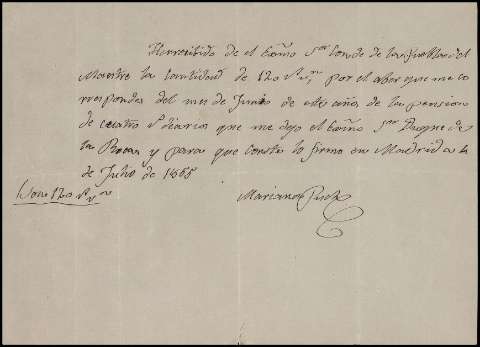 He recibido de el Exmo Sor Conde de las Pueblas del
Maestre la Cantidad de 120 rs vn por el aber que me co
rresponde del mes de Junio de este año de la pension
de cuatro rs diarios que me dejo el Exmo Sor Duque de
la Roca y para que conste lo firmo en Madrid a
de Julio de 1865
Son 120 rs vn
Mariano